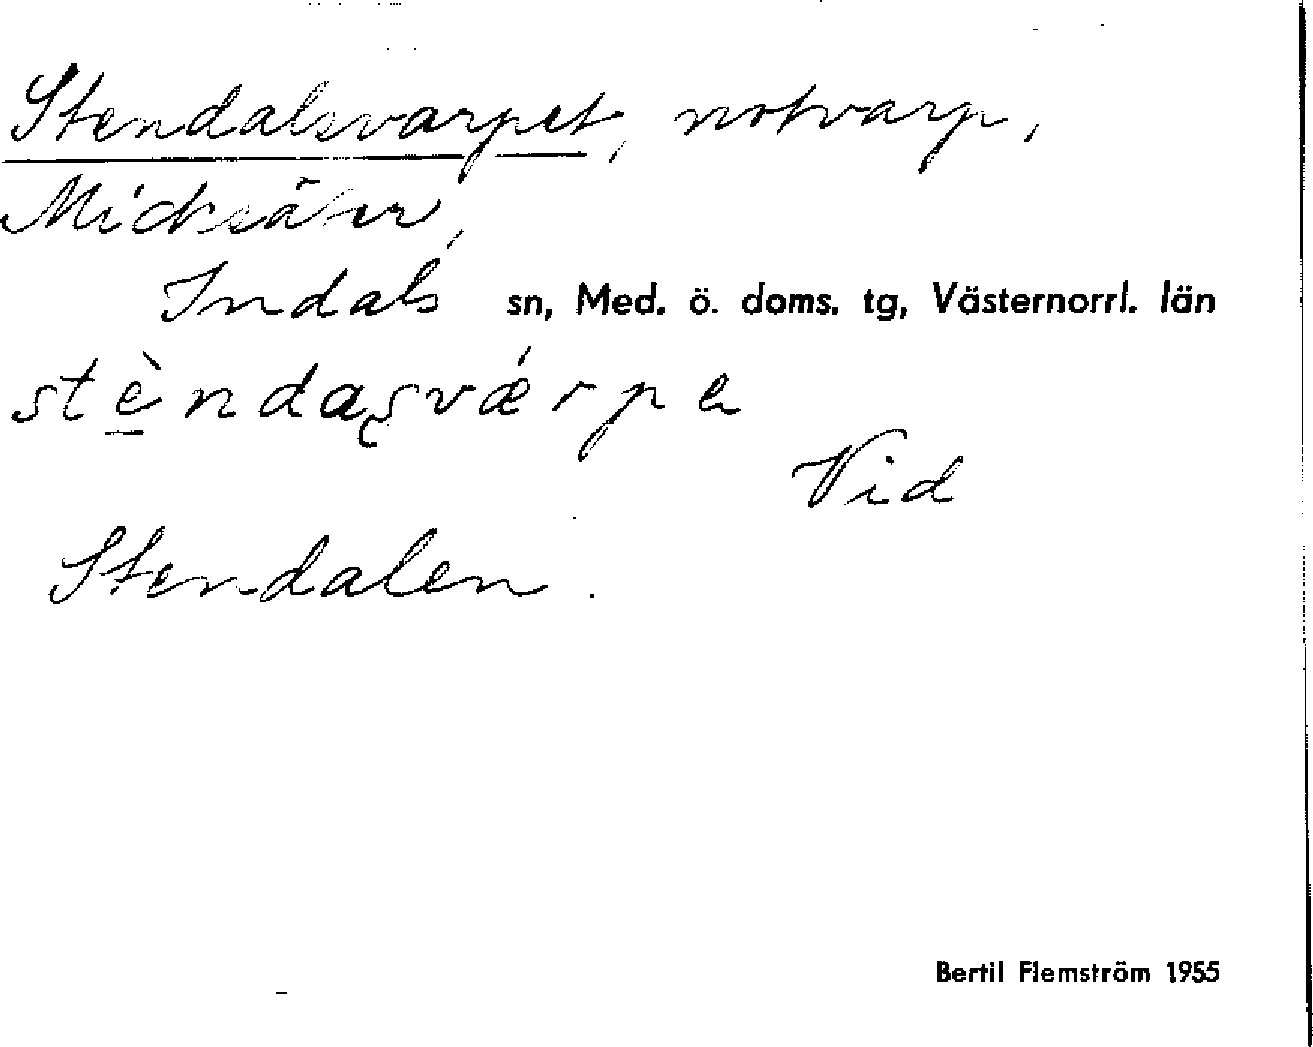 Stendalsvarpet, notvarp,
Micksäter,
Indals sn, Med. ö. doms. tg, Västernorrl. län
stèndaʂvǽrpe
Vid
Stendalen.
Bertil Flemström 1955